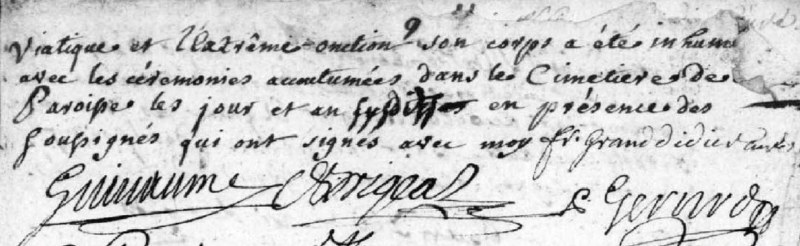 viatique et l'extrême-onction, son corps a été inhumé
avec les cérémonies accoutumées dans le Cimetiere de
Paroisse les jour et an susdittes en présence des
soussignés qui ont signés avec moy fr. Granddidier
Guillaume
Gerard